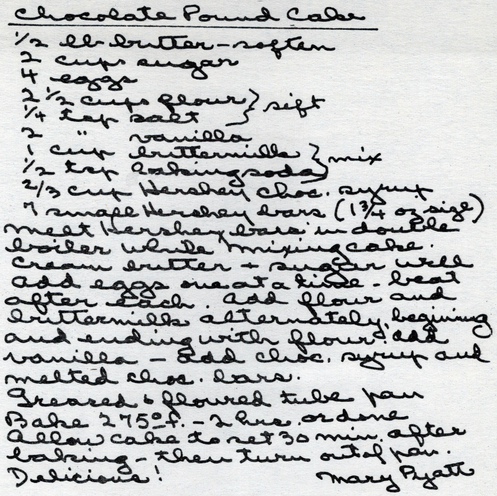 Chocolate Pound Cake
1/2 lb butter - soften
2 cups sugar
4 eggs
2 1/2 cups flour } sift
1/4 tsp salt
2 " vanilla
1 cup buttermilk } mix
1/2 tsp baking soda
2/3 cup Hershey choc. syrup
7 small Hershey bars (1 3/4 oz size)
melt Hershey bars in double
boiler while mixing cake.
Cream butter + sugar well
add eggs one at a time - beat
after each. Add flour and
buttermilk alternately, beginning
and ending with flour. Add
vanilla - add choc. syrup and
melted choc. bars.
Greased & floured tube pan
Bake 275° f. - 2 hrs. or done
Allow cake to set 30 min. after
baking - then turn out of pan.
Delicious! Mary Pyatt